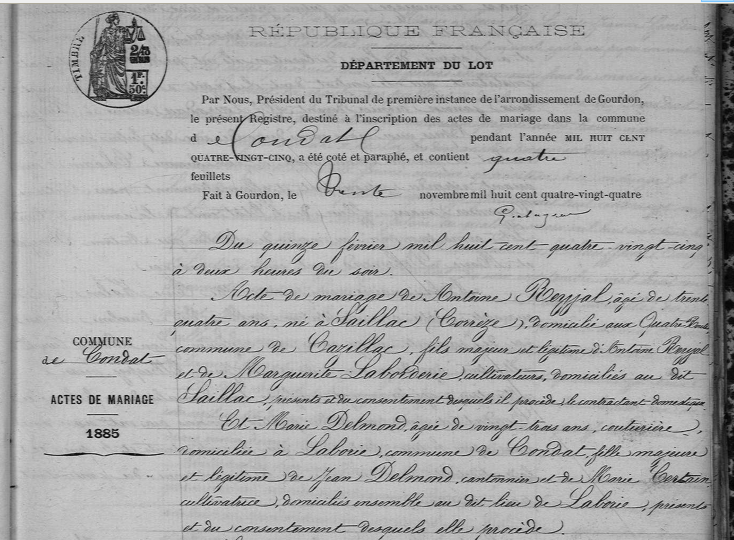 TIMBRE
2/10
EN SUS
1F.
50c.
RÉPUBLIQUE FRANÇAISE
DÉPARTEMENT DU LOT
Par Nous, Président du Tribunal de première instance de l'arrondissement de Gourdon,
le présent Registre, destiné à l'inscription des actes de mariage dans la commune
d e Condat pendant l'année MIL HUIT CENT
QUATRE-VINGT-CINQ, a été coté et paraphé, et contient quatre
feuillets
Fait à Gourdon, le Trente novembre mil huit cent quatre-vingt-quatre
COMMUNE
de Condat
ACTES DE MARIAGE
1885
Du quinze février mil huit cent quatre-vingt-cinq
à deux heures du soir.
Acte de mariage de Antoine Reyjal, âgé de trente
quatre ans, né à Saillac (Corrèze), domicilié aux Quatre
commune de Cazillac, fils majeur et légitime d'Antoine Reyjal
et de Marguerite Laborderie, cultivateurs, domiciliés au dit
Saillac, présents et du consentement desquels il procède, le contractant
Et Marie Delmond, âgée de vingt-trois ans, couturière,
domiciliée à Laborie, commune de Condat, fille majeure
et légitime de Jean Delmond, cantonnier et de Marie Certain
cultivatrice, domiciliés ensemble au dit lieu de Laborie, présents
et du consentement desquels elle procède.